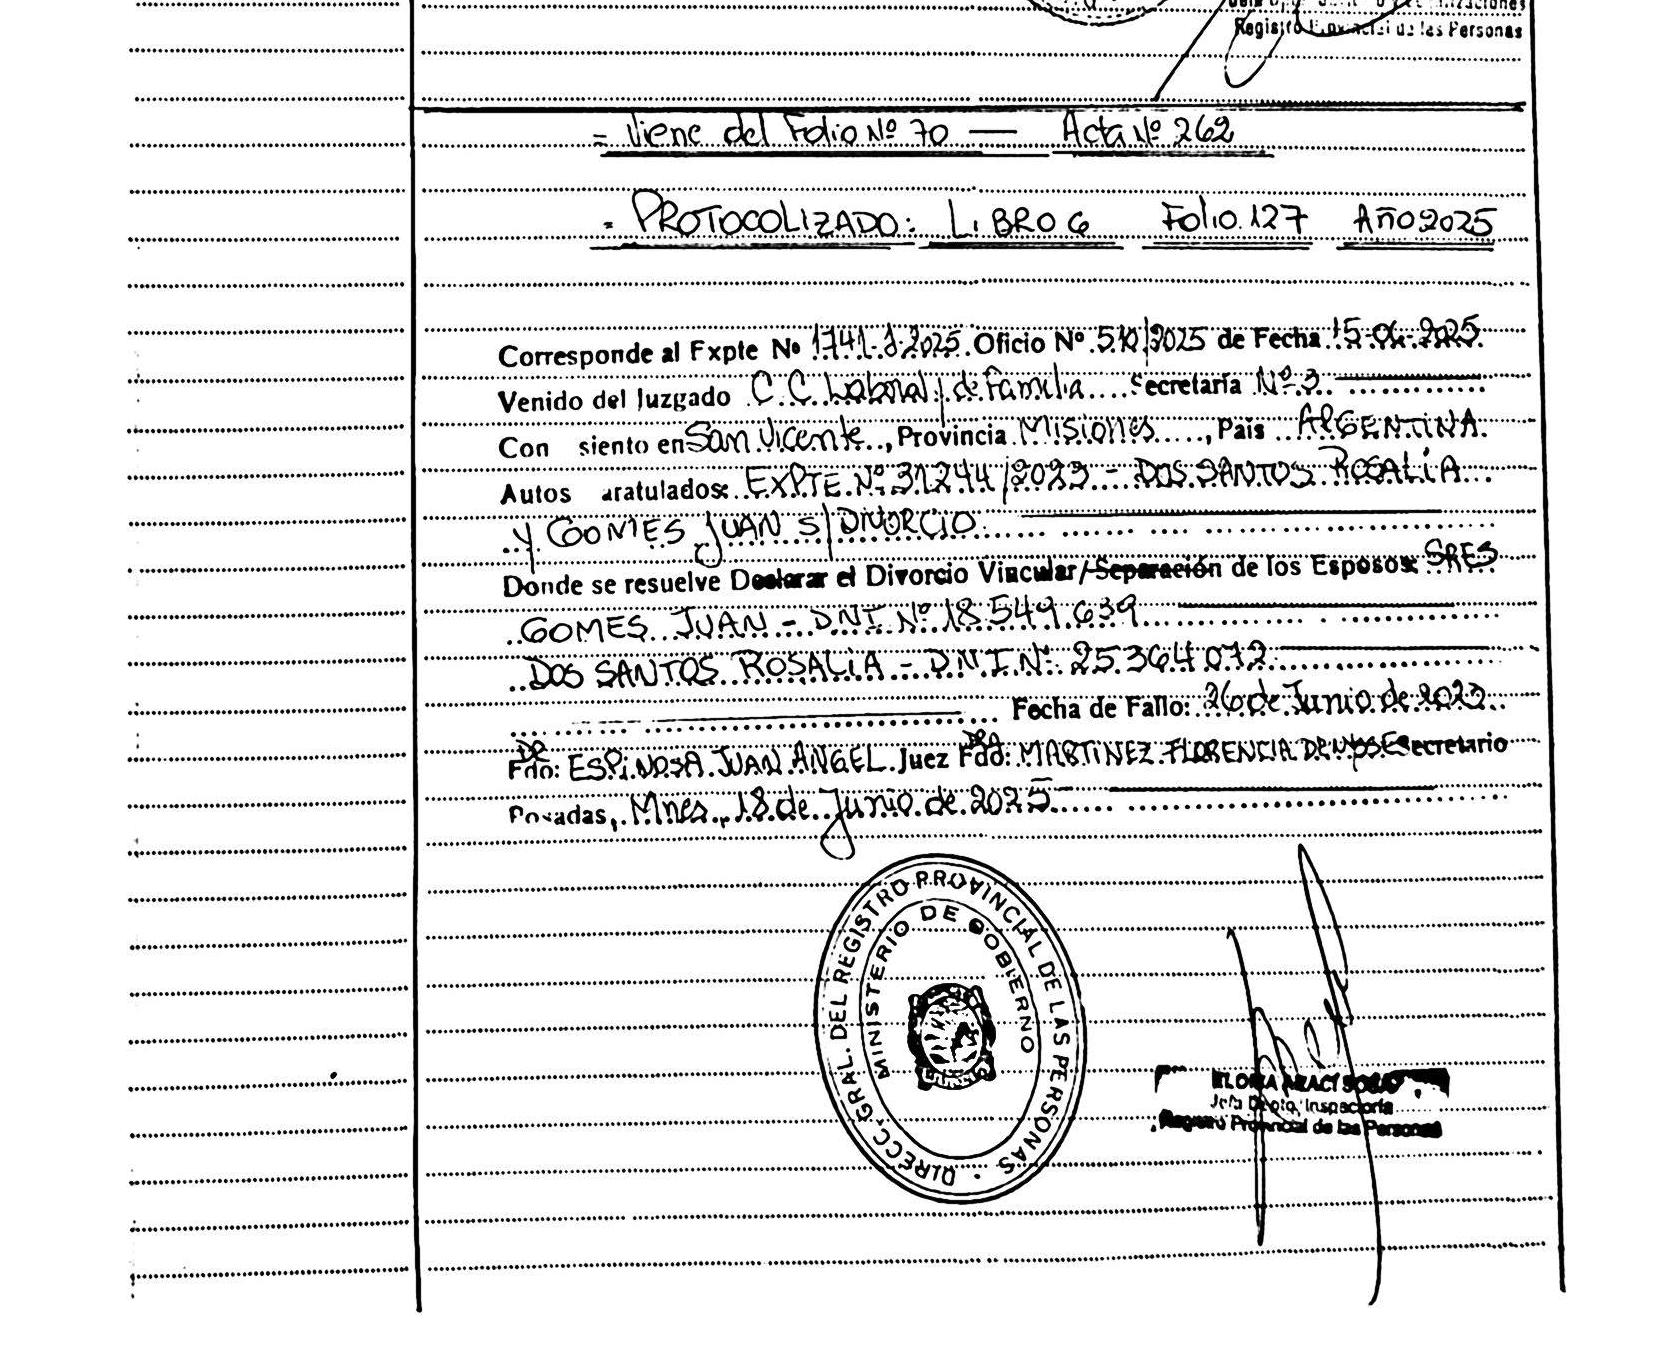 Registro Provincial de las Personas
= Viene del Folio Nº 70 — Acta Nº 262
= PROTOCOLIZADO: LIBRO 6 Folio 127 Año 2025
Corresponde al Expte Nº 1741-J-2025 Oficio Nº 510/2025 de Fecha 15-04-2025
Venido del Juzgado C.C. Laboral y de Familia Secretaría Nº 3
Con siento en San Vicente, Provincia Misiones, País ARGENTINA
Autos aratulados: EXPTE Nº 31244/2023 - DOS SANTOS ROSALIA
Y GOMES JUAN S/ DIVORCIO
Donde se resuelve Declarar el Divorcio Vincular/Separación de los Esposos: SRES
GOMES JUAN - DNI Nº 18.549.639
DOS SANTOS ROSALIA - D.N.I Nº 25.364.072
Fecha de Fallo: 26 de Junio de 2023
DR DRA
Fdo: ESPINOSA JUAN ANGEL Juez Fdo: MARTINEZ FLORENCIA DENYSE Secretario
Posadas, Mnes, 18 de Junio de 2025
DIRECC. GRAL. DEL REGISTRO PROVINCIAL DE LAS PERSONAS
MINISTERIO DE GOBIERNO
Jefa Dpto. Inspectoría
Registro Provincial de las Personas